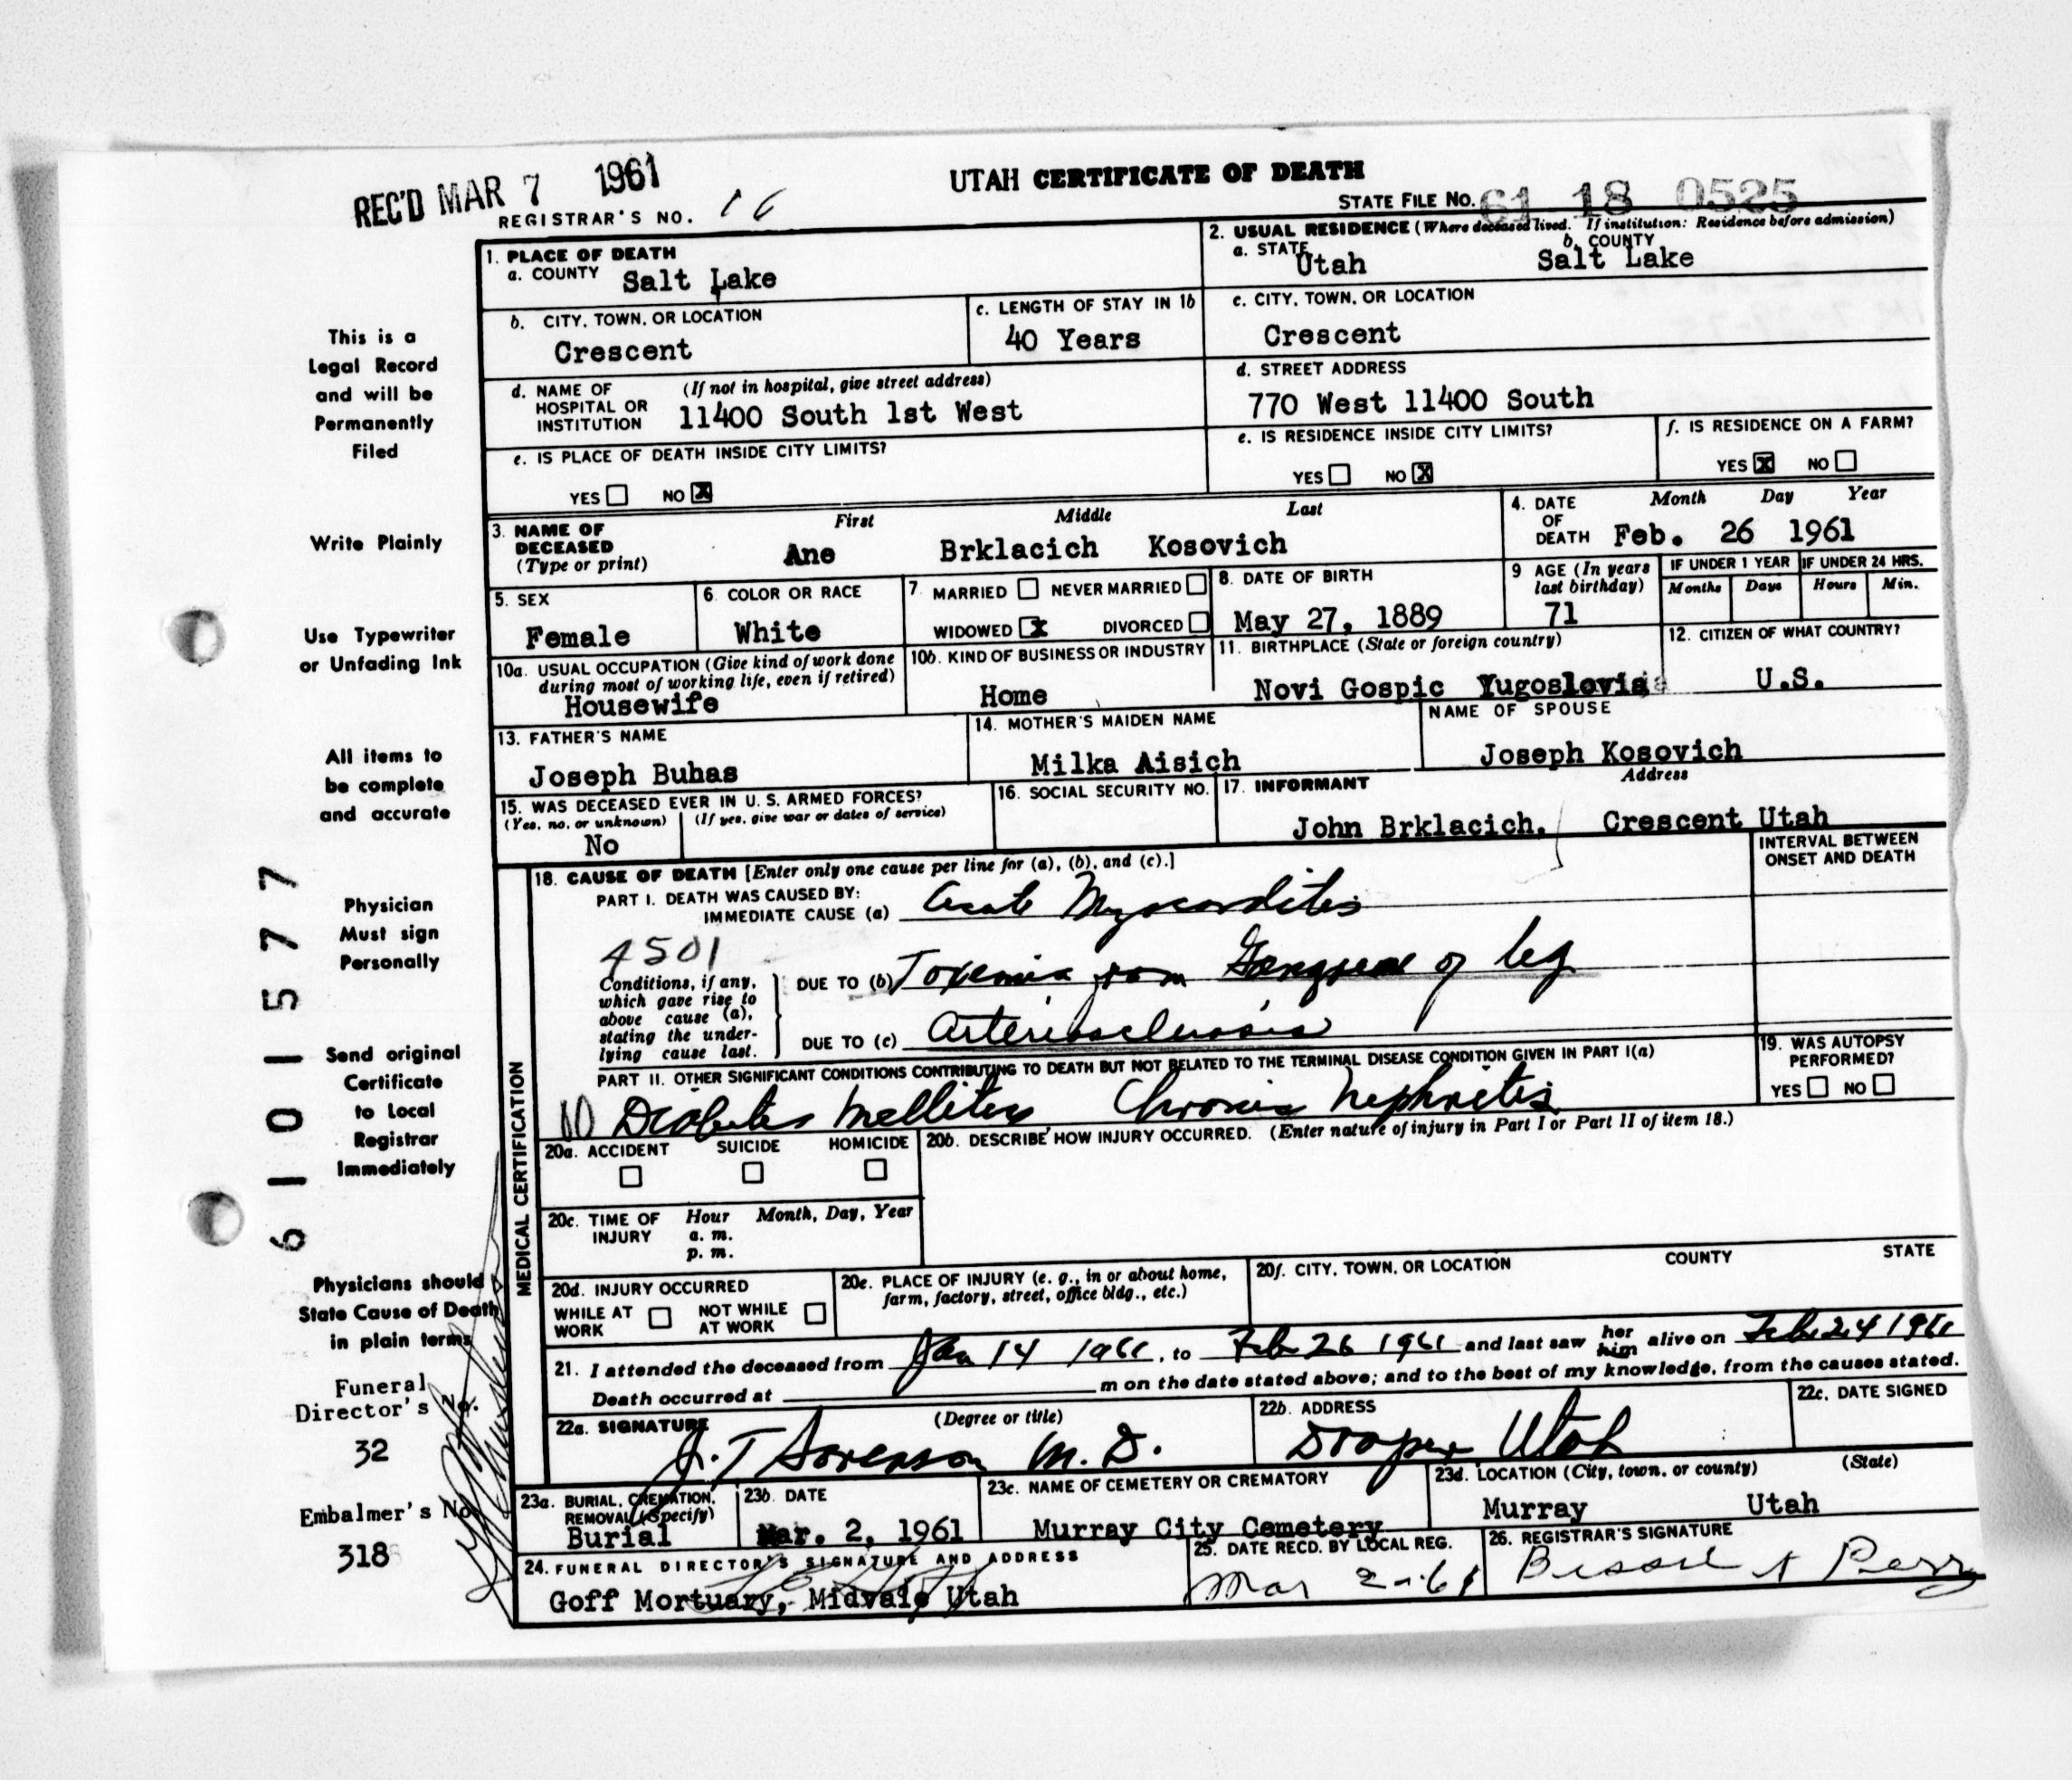 REC'D MAR 7 1961
UTAH CERTIFICATE OF DEATH
REGISTRAR'S NO. 16
STATE FILE NO. 61 18 0525
1. PLACE OF DEATH
a. COUNTY Salt Lake
2. USUAL RESIDENCE (Where deceased lived. If institution: Residence before admission)
a. STATE Utah b. COUNTY Salt Lake
b. CITY, TOWN, OR LOCATION
Crescent
c. LENGTH OF STAY IN 1b
40 Years
c. CITY, TOWN, OR LOCATION
Crescent
d. NAME OF HOSPITAL OR INSTITUTION (If not in hospital, give street address)
11400 South 1st West
d. STREET ADDRESS
770 West 11400 South
e. IS PLACE OF DEATH INSIDE CITY LIMITS?
YES NO X
e. IS RESIDENCE INSIDE CITY LIMITS?
YES NO X
f. IS RESIDENCE ON A FARM?
YES X NO
3. NAME OF DECEASED (Type or print)
First Middle Last
Ane Brklacich Kosovich
4. DATE OF DEATH Month Day Year
Feb. 26 1961
5. SEX
Female
6. COLOR OR RACE
White
7. MARRIED NEVER MARRIED
WIDOWED X DIVORCED
8. DATE OF BIRTH
May 27, 1889
9 AGE (In years last birthday)
71
IF UNDER 1 YEAR IF UNDER 24 HRS.
Months Days Hours Min.
10a. USUAL OCCUPATION (Give kind of work done during most of working life, even if retired)
Housewife
10b. KIND OF BUSINESS OR INDUSTRY
Home
11. BIRTHPLACE (State or foreign country)
Novi Gospic Yugoslovia
12. CITIZEN OF WHAT COUNTRY?
U.S.
13. FATHER'S NAME
Joseph Buhas
14. MOTHER'S MAIDEN NAME
Milka Aisich
NAME OF SPOUSE
Joseph Kosovich
15. WAS DECEASED EVER IN U. S. ARMED FORCES?
(Yes, no, or unknown) (If yes, give war or dates of service)
No
16. SOCIAL SECURITY NO.
17. INFORMANT Address
John Brklacich, Crescent Utah
MEDICAL CERTIFICATION
18. CAUSE OF DEATH [Enter only one cause per line for (a), (b), and (c).]
INTERVAL BETWEEN ONSET AND DEATH
PART I. DEATH WAS CAUSED BY:
IMMEDIATE CAUSE (a) Acute Myocarditis
4501
Conditions, if any, which gave rise to above cause (a), stating the underlying cause last.
DUE TO (b) Toxemia from Gangrene of leg
DUE TO (c) Arteriosclerosis
PART II. OTHER SIGNIFICANT CONDITIONS CONTRIBUTING TO DEATH BUT NOT RELATED TO THE TERMINAL DISEASE CONDITION GIVEN IN PART I(a)
Diabetes Mellitus Chronic Nephritis
19. WAS AUTOPSY PERFORMED?
YES NO
20a. ACCIDENT SUICIDE HOMICIDE
20b. DESCRIBE HOW INJURY OCCURRED. (Enter nature of injury in Part I or Part II of item 18.)
20c. TIME OF INJURY Hour Month, Day, Year
a. m.
p. m.
20d. INJURY OCCURRED
WHILE AT WORK NOT WHILE AT WORK
20e. PLACE OF INJURY (e. g., in or about home, farm, factory, street, office bldg., etc.)
20f. CITY, TOWN, OR LOCATION COUNTY STATE
21. I attended the deceased from Jan 14 1961, to Feb 26 1961 and last saw her him alive on Feb 24 1961
Death occurred at m on the date stated above; and to the best of my knowledge, from the causes stated.
22a. SIGNATURE (Degree or title)
J. T Sorenson M. D.
22b. ADDRESS
Draper Utah
22c. DATE SIGNED
23a. BURIAL, CREMATION, REMOVAL (Specify)
Burial
23b. DATE
Mar. 2, 1961
23c. NAME OF CEMETERY OR CREMATORY
Murray City Cemetery
23d. LOCATION (City, town, or county) (State)
Murray Utah
24. FUNERAL DIRECTOR'S SIGNATURE AND ADDRESS
Goff Mortuary, Midvale Utah
25. DATE RECD. BY LOCAL REG.
Mar 2-61
26. REGISTRAR'S SIGNATURE
Perry
This is a
Legal Record
and will be
Permanently
Filed
Write Plainly
Use Typewriter
or Unfading Ink
All items to
be complete
and accurate
Physician
Must sign
Personally
Send original
Certificate
to Local
Registrar
Immediately
Physicians should
State Cause of Death
in plain terms
Funeral
Director's No.
32
Embalmer's No
318
6101577